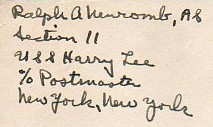 Ralph A Newcomb, AS
Section 11
USS Harry Lee
c/o Postmaster
New York, New York